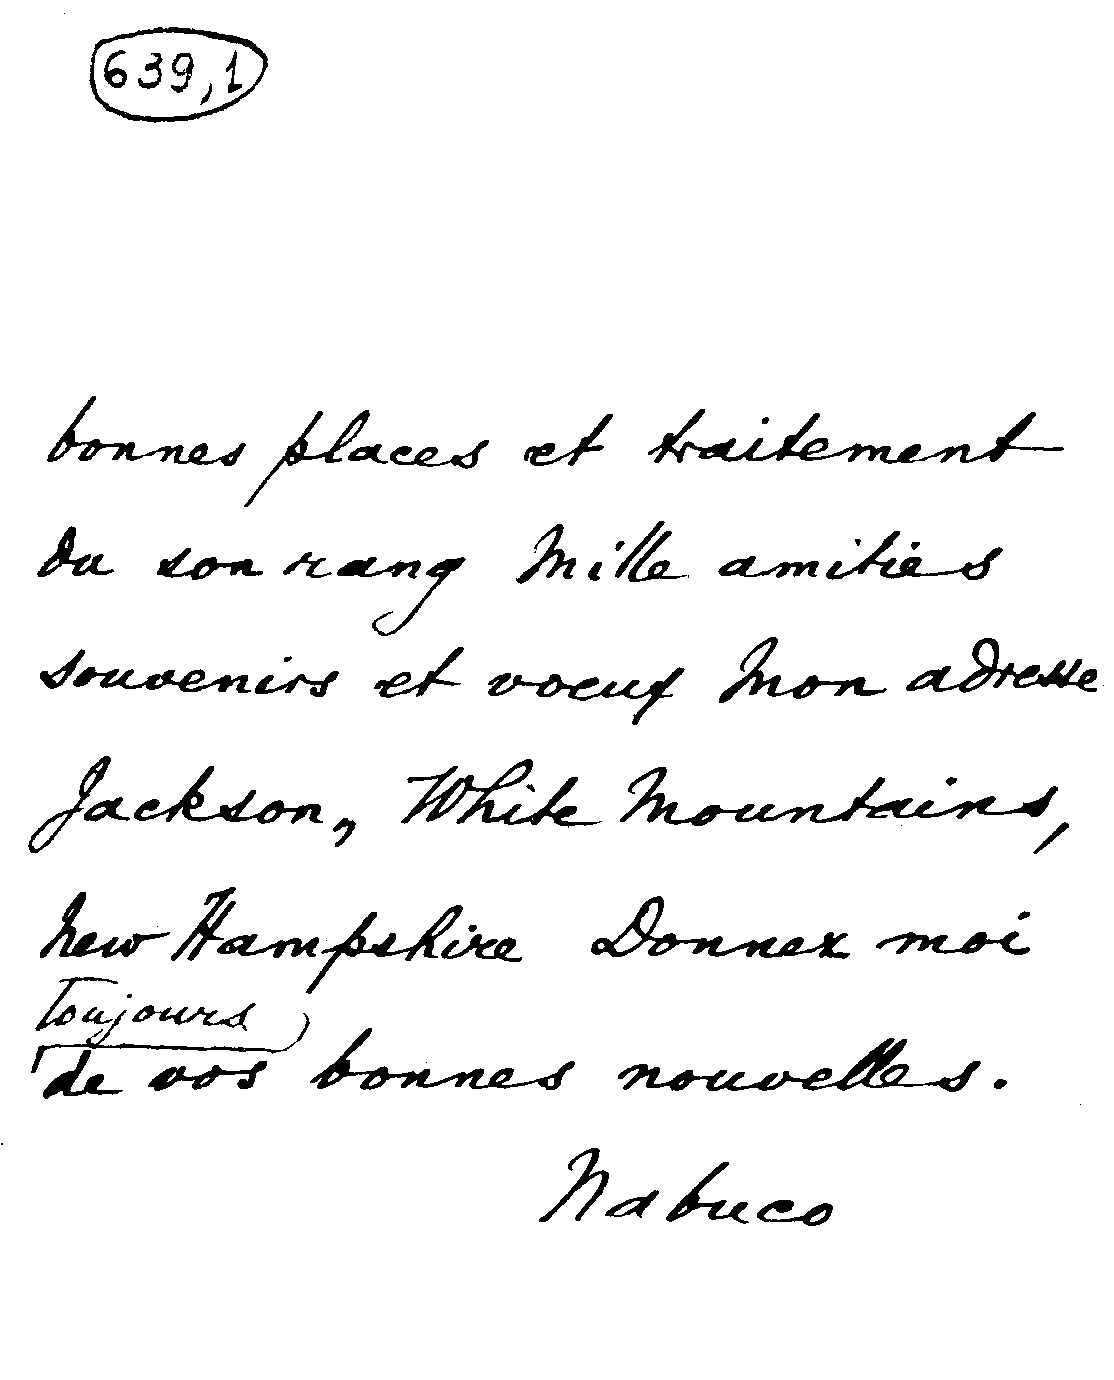 639,1
bonnes places et traitement
du son rang Mille amitiés
souvenirs et voeux Mon adresse
Jackson, White Mountains,
New Hampshire Donnez moi
toujours
de vos bonnes nouvelles.
Nabuco